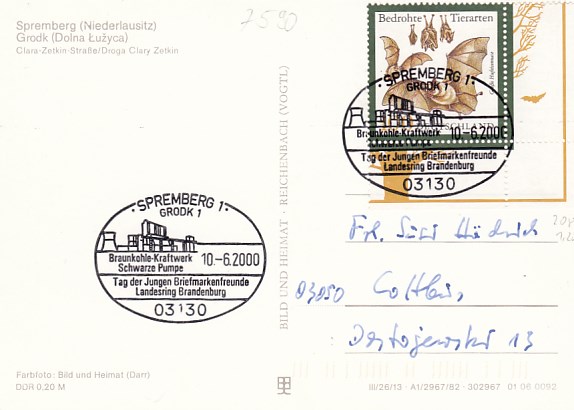 Spremberg (Niederlausitz)
Grodk (Dolna Łužyca)
Clara-Zetkin-Straße/Droga Clary Zetkin
7590
Bedrohte Tierarten
DEUTSCHLAND
SPREMBERG 1
GRODK 1
Braunkohle-Kraftwerk
Schwarze Pumpe
10.-6.2000
Tag der Jungen Briefmarkenfreunde
Landesring Brandenburg
03130
SPREMBERG 1
GRODK 1
Braunkohle-Kraftwerk
Schwarze Pumpe
10.-6.2000
Tag der Jungen Briefmarkenfreunde
Landesring Brandenburg
03130
BILD UND HEIMAT · REICHENBACH (VOGTL)
Frl. Susi
03050 Cottbus,
Dostojewski 13
Farbfoto: Bild und Heimat (Darr)
DDR 0.20 M
III/26/13 · A1/2967/82 · 302967 01 06 0092